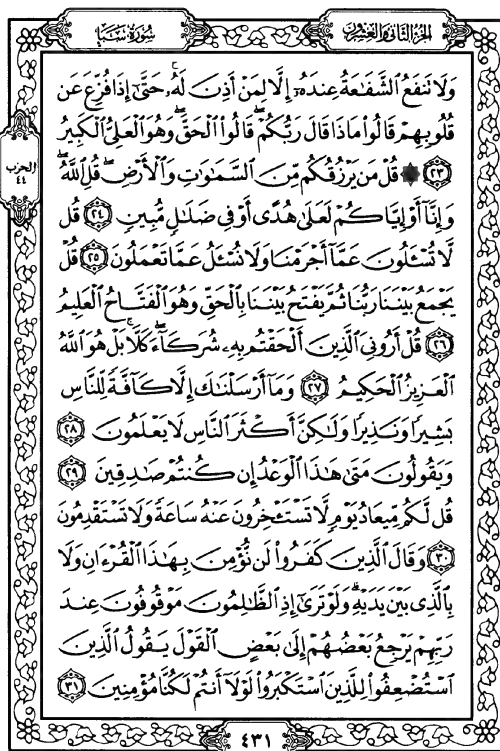 الجزء الثاني والعشرون
سورة سبإ
وَلَا تَنفَعُ الشَّفَاعَةُ عِندَهُۥٓ إِلَّا لِمَنْ أَذِنَ لَهُۥ حَتَّىٰٓ إِذَا فُزِّعَ عَن
قُلُوبِهِمْ قَالُوا۟ مَاذَا قَالَ رَبُّكُمْ ۖ قَالُوا۟ الْحَقَّ ۖ وَهُوَ الْعَلِىُّ الْكَبِيرُ
٢٣ ۞ قُلْ مَن يَرْزُقُكُم مِّنَ السَّمَٰوَٰتِ وَالْأَرْضِ ۖ قُلِ اللَّهُ ۖ
وَإِنَّآ أَوْ إِيَّاكُمْ لَعَلَىٰ هُدًى أَوْ فِى ضَلَٰلٍ مُّبِينٍ ٢٤ قُل
لَّا تُسْـَٔلُونَ عَمَّآ أَجْرَمْنَا وَلَا نُسْـَٔلُ عَمَّا تَعْمَلُونَ ٢٥ قُلْ
يَجْمَعُ بَيْنَنَا رَبُّنَا ثُمَّ يَفْتَحُ بَيْنَنَا بِالْحَقِّ وَهُوَ الْفَتَّاحُ الْعَلِيمُ
٢٦ قُلْ أَرُونِىَ الَّذِينَ أَلْحَقْتُم بِهِۦ شُرَكَآءَ ۖ كَلَّا ۚ بَلْ هُوَ اللَّهُ
الْعَزِيزُ الْحَكِيمُ ٢٧ وَمَآ أَرْسَلْنَٰكَ إِلَّا كَآفَّةً لِّلنَّاسِ
بَشِيرًا وَنَذِيرًا وَلَٰكِنَّ أَكْثَرَ النَّاسِ لَا يَعْلَمُونَ ٢٨
وَيَقُولُونَ مَتَىٰ هَٰذَا الْوَعْدُ إِن كُنتُمْ صَٰدِقِينَ ٢٩
قُل لَّكُم مِّيعَادُ يَوْمٍ لَّا تَسْتَـْٔخِرُونَ عَنْهُ سَاعَةً وَلَا تَسْتَقْدِمُونَ
٣٠ وَقَالَ الَّذِينَ كَفَرُوا۟ لَن نُّؤْمِنَ بِهَٰذَا الْقُرْءَانِ وَلَا
بِالَّذِى بَيْنَ يَدَيْهِ ۗ وَلَوْ تَرَىٰٓ إِذِ الظَّٰلِمُونَ مَوْقُوفُونَ عِندَ
رَبِّهِمْ يَرْجِعُ بَعْضُهُمْ إِلَىٰ بَعْضٍ الْقَوْلَ يَقُولُ الَّذِينَ
اسْتُضْعِفُوا۟ لِلَّذِينَ اسْتَكْبَرُوا۟ لَوْلَآ أَنتُمْ لَكُنَّا مُؤْمِنِينَ ٣١
الحزب
٤٤
٤٣١